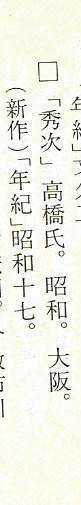 □「秀次」高橋氏。昭和。大阪。
(新作)「年紀」昭和十七。